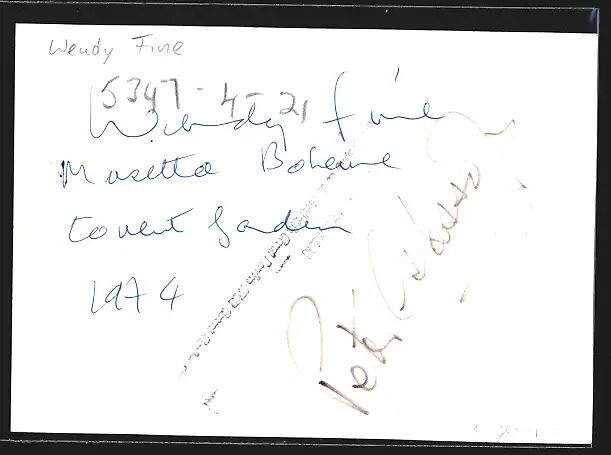 Wendy Fine
5347-4-21
Wendy Fine
Musetta Boheme
Covent Garden
1974
Peter